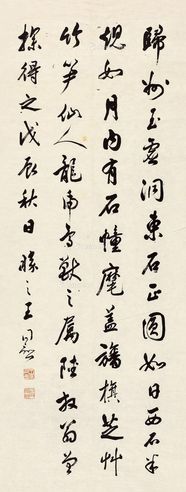 歸州玉虛洞東石正圓如日西石半
規如月內有石幢麾蓋旛旗芝艸
竹笋仙人龍虎鳥獸之屬陸放翁曾
探得之戊辰秋日勝之王同愈